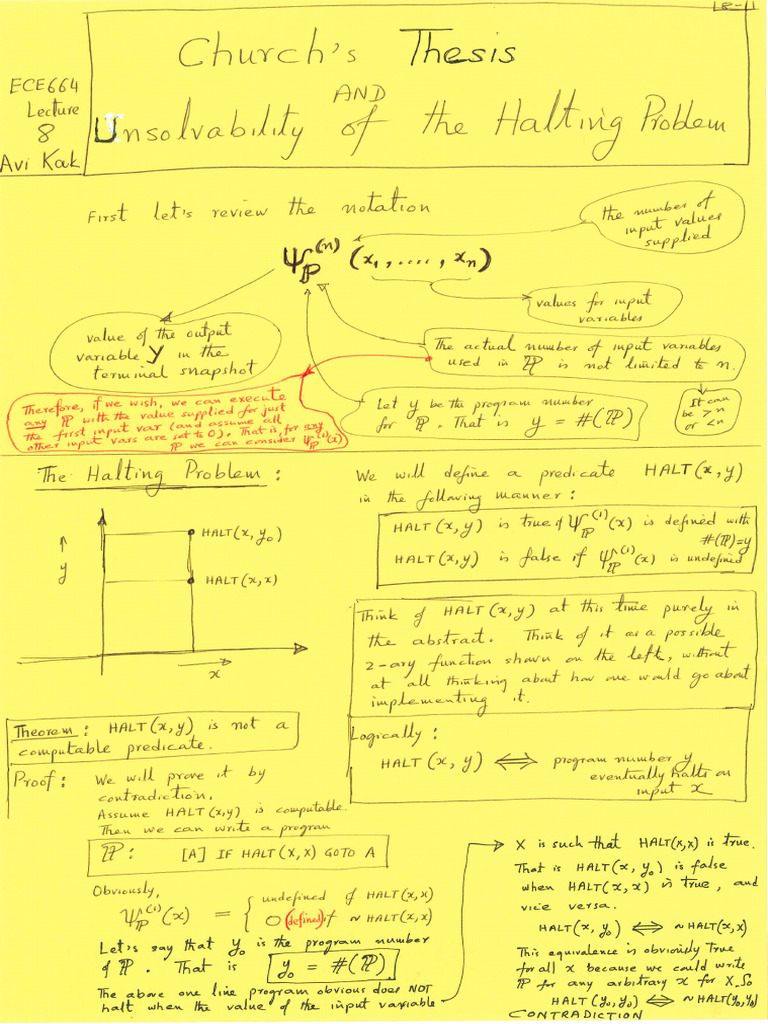 L8-11
ECE664
Lecture
8
Avi Kak
Church's Thesis
AND
Unsolvability of the Halting Problem
First let's review the notation
the number of
input values
supplied
Ψ_ℙ^(n) (x₁, ...., xₙ)
values for input
variables
value of the output
variable Y in the
terminal snapshot
The actual number of input variables
used in ℙ is not limited to n.
It can
be >n
or <n
Let y be the program number
for ℙ. That is y = #(ℙ)
Therefore, if we wish, we can execute
any ℙ with the value supplied for just
the first input var (and assume all
other input vars are set to 0). That is, for any
ℙ we can consider Ψ_ℙ^(1)(x)
The Halting Problem:
↑
y
HALT(x, y₀)
HALT(x, x)
x
We will define a predicate HALT(x, y)
in the following manner:
HALT (x, y) is true if Ψ_ℙ^(1)(x) is defined with
#(ℙ)=y
HALT (x, y) is false if Ψ_ℙ^(1)(x) is undefined
Think of HALT (x, y) at this time purely in
the abstract. Think of it as a possible
2-ary function shown on the left, without
at all thinking about how one would go about
implementing it.
Logically:
HALT (x, y) ⟺ program number y
eventually halts on
input x
Theorem: HALT(x, y) is not a
computable predicate.
Proof: We will prove it by
contradiction.
Assume HALT (x,y) is computable.
Then we can write a program
ℙ: [A] IF HALT(X,X) GOTO A
Obviously,
Ψ_ℙ^(1)(x) = { undefined if HALT(x,x)
0 (defined) if ~ HALT(x,x)
Let's say that y₀ is the program number
of ℙ. That is y₀ = #(ℙ)
The above one line program obvious does NOT
halt when the value of the input variable
X is such that HALT(X,X) is true.
That is HALT(x, y₀) is false
when HALT(x, x) is true, and
vice versa.
HALT(x, y₀) ⟺ ~HALT(x,x)
This equivalence is obviously true
for all x because we could write
ℙ for any arbitrary x for X. So
HALT (y₀,y₀) ⟺ ~HALT(y₀,y₀)
CONTRADICTION